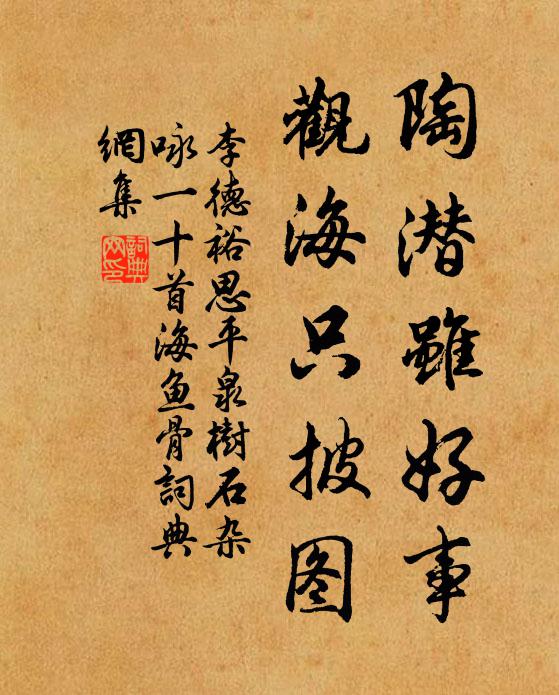 陶潜雖好事
觀海只披图
李德裕思平泉樹石杂
咏一十首海鱼骨詞典
網集
詞典
网印